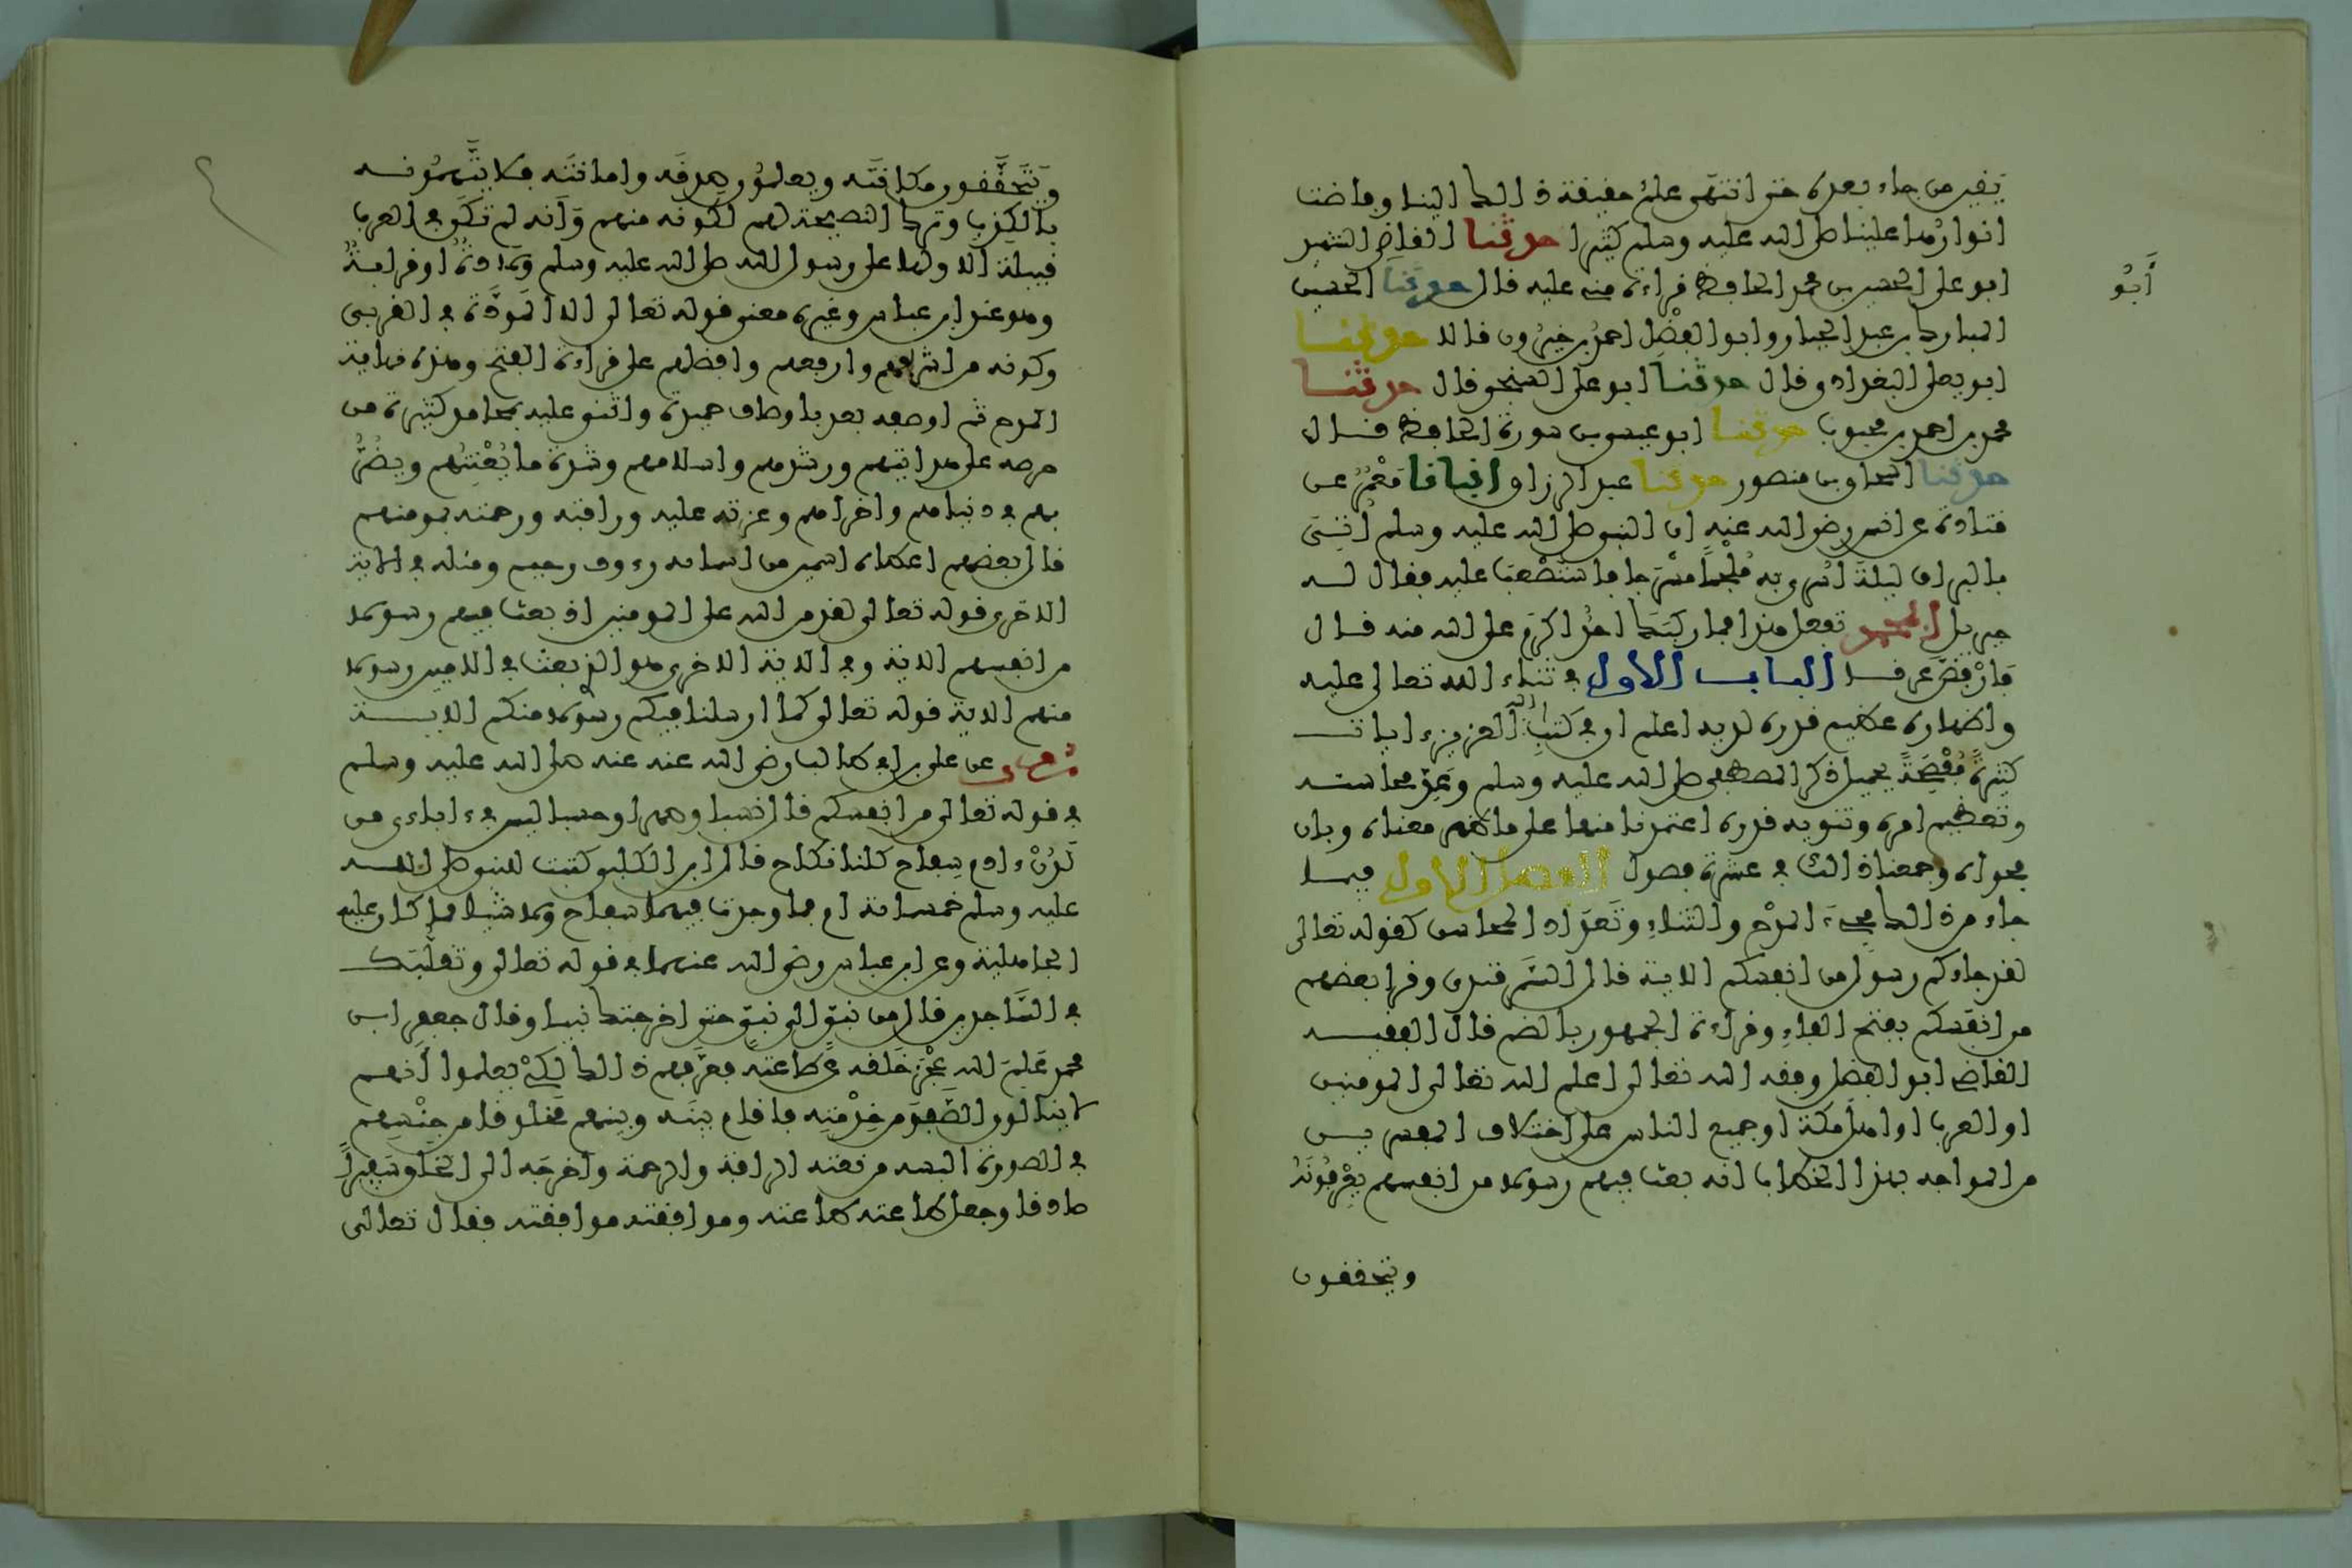 يقين من جاء بعده حتى انتهى علم حقيقة ذالك الينا وفاضت
انواره علينا صلى الله عليه وسلم كثيرا حدثنا القاضى الشهيد
ابو على الحسين بن محمد الحافظ قراءة منه عليه قال حدثنا الحسين
أبو
المبارك بن عبد الجبار وابو الفضل احمد بن خيرون قالا حدثنا
ابو يعلى البغدادى قال حدثنا ابو على السنجى قال حدثنا
محمد بن احمد بن محبوب حدثنا ابو عيسى بن سورة الحافظ قال
حدثنا اسحاق بن منصور حدثنا عبد الرزاق انبانا معمر عن
قتادة عن انس رضى الله عنه ان النبى صلى الله عليه وسلم اتى
بالبراق ليلة اسرى به ملجما مسرجا فاستصعب عليه فقال له
جبريل ابمحمد تفعل هذا فما ركبك احد اكرم على الله منه قال
فارفض عرقا الباب الاول في ثناء الله تعالى عليه
واظهاره عظيم قدره لديه اعلم ان في كتاب الله العزيز ءايات
كثيرة مفصحة بجميل ذكر المصطفى صلى الله عليه وسلم وعد محاسنه
وتعظيم امره وتنويه قدره اعتمدنا منها على ما ظهر معناه وبان
فحواه وجمعنا ذالك في عشرة فصول الفصل الاول فيما
جاء من ذالك مجىء المدح والثناء وتعداد المحاسن كقوله تعالى
لقد جاءكم رسول من انفسكم الاية قال السمرقندى وقرا بعضهم
من انفسكم بفتح الفاء وقراءة الجمهور بالضم قال الفقيه
القاضى ابو الفضل وفقه الله تعالى اعلم الله تعالى المومنين
او العرب او اهل مكة او جميع الناس على اختلاف المفسرين
من المواجه بهذا الخطاب انه بعث فيهم رسولا من انفسهم يعرفونه
ويتحققون
ويتحققون مكانته ويعلمون صدقه وامانته فلا يتهمونه
بالكذب وترك النصيحة لهم لكونه منهم وانه لم تكن في العرب
قبيلة الا ولها على رسول الله صلى الله عليه وسلم ولادة او قرابة
وهو عند ابن عباس وغيره معنى قوله تعالى الا المودة في القربى
وكونه من اشرفهم وارفعهم وافضلهم على قراءة الفتح وهذه نهاية
المدح ثم اوصفه بعد باوصاف حميدة واثنى عليه بمحامد كثيرة من
حرصه على هدايتهم ورشدهم واسلامهم وشدة ما يعنتهم ويضر
بهم في دنياهم واخراهم وعزته عليه ورافته ورحمته بمومنهم
قال بعضهم اعطاه اسمين من اسمائه رءوف رحيم ومثله في الاية
الاخرى قوله تعالى لقد من الله على المومنين اذ بعث فيهم رسولا
من انفسهم الاية وفي الاية الاخرى هو الذى بعث في الاميين رسولا
منهم الاية قوله تعالى كما ارسلنا فيكم رسولا منكم الاية
روى عن على بن ابى طالب رضى الله عنه عنه صلى الله عليه وسلم
في قوله تعالى من انفسكم قال نسبا وصهرا وحسبا ليس في ءاباءى من
لدن ءادم سفاح كلنا نكاح قال ابن الكلبى كتبت للنبى صلى الله
عليه وسلم خمسماية ام فما وجدت فيهما سفاح ولا شيئا مما كان عليه
الجاهلية وعن ابن عباس رضى الله عنهما في قوله تعالى وتقلبك
في الساجدين قال من نبى الى نبى حتى اخرجتك نبيا وقال جعفر ابن
محمد علم الله عجز خلقه عن طاعته فعرفهم ذالك لكى يعلموا انهم
لا ينالون الصفو من خدمته فاقام بينه وبينهم مخلوقا من جنسهم
في الصورة البسه من نعته الرافة والرحمة واخرجه الى الخلق سفيرا
صادقا وجعل طاعته طاعته وموافقته موافقته فقال تعالى